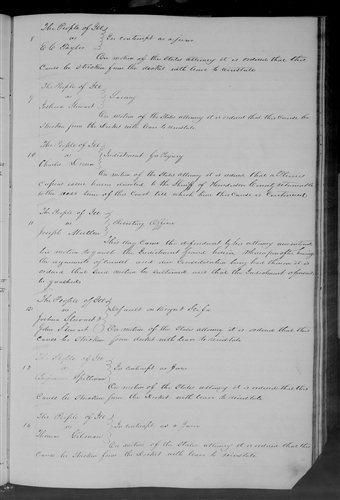 The People of Ills
8 vs In contempt as a juror
On motion of the States attorney it is ordered that this
Cause be stricken from the docket with leave to reinstate
The People of Ills
9 vs Larceny
Joshua Stewart
On motion of the States attorney it is ordered that this Cause be
Stricken from the Docket with leave to reinstate
The People of Ills
10 vs Indictment for
Charles
On motion of the States attorney it is ordered that a
issue herein directed to the Sheriff of Henderson County returnable
to the next term of this Court till which time this Cause is Continued
The People of Ills
11 vs
Joseph
This day came the defendant by his attorney and entered
his motion to quash the Indictment found herein Whereupon after hearing
the arguments of Counsel and due Consideration being had thereon it is
ordered that said motion be sustained and that the Indictment
be quashed
The People of Ills
12 vs Assault
Joshua Stewart &
John Stewart On motion of the States attorney it is ordered that this
Cause be Stricken from the Docket with leave to reinstate
The People of Ills
13 vs In contempt as Juror
On motion of the States attorney it is ordered that this
Cause be Stricken from the Docket with leave to reinstate
The People of Ills
14 vs In contempt as a Juror
Thomas Gibson
On motion of the States attorney it is ordered that this
Cause be Stricken from the Docket with leave to reinstate